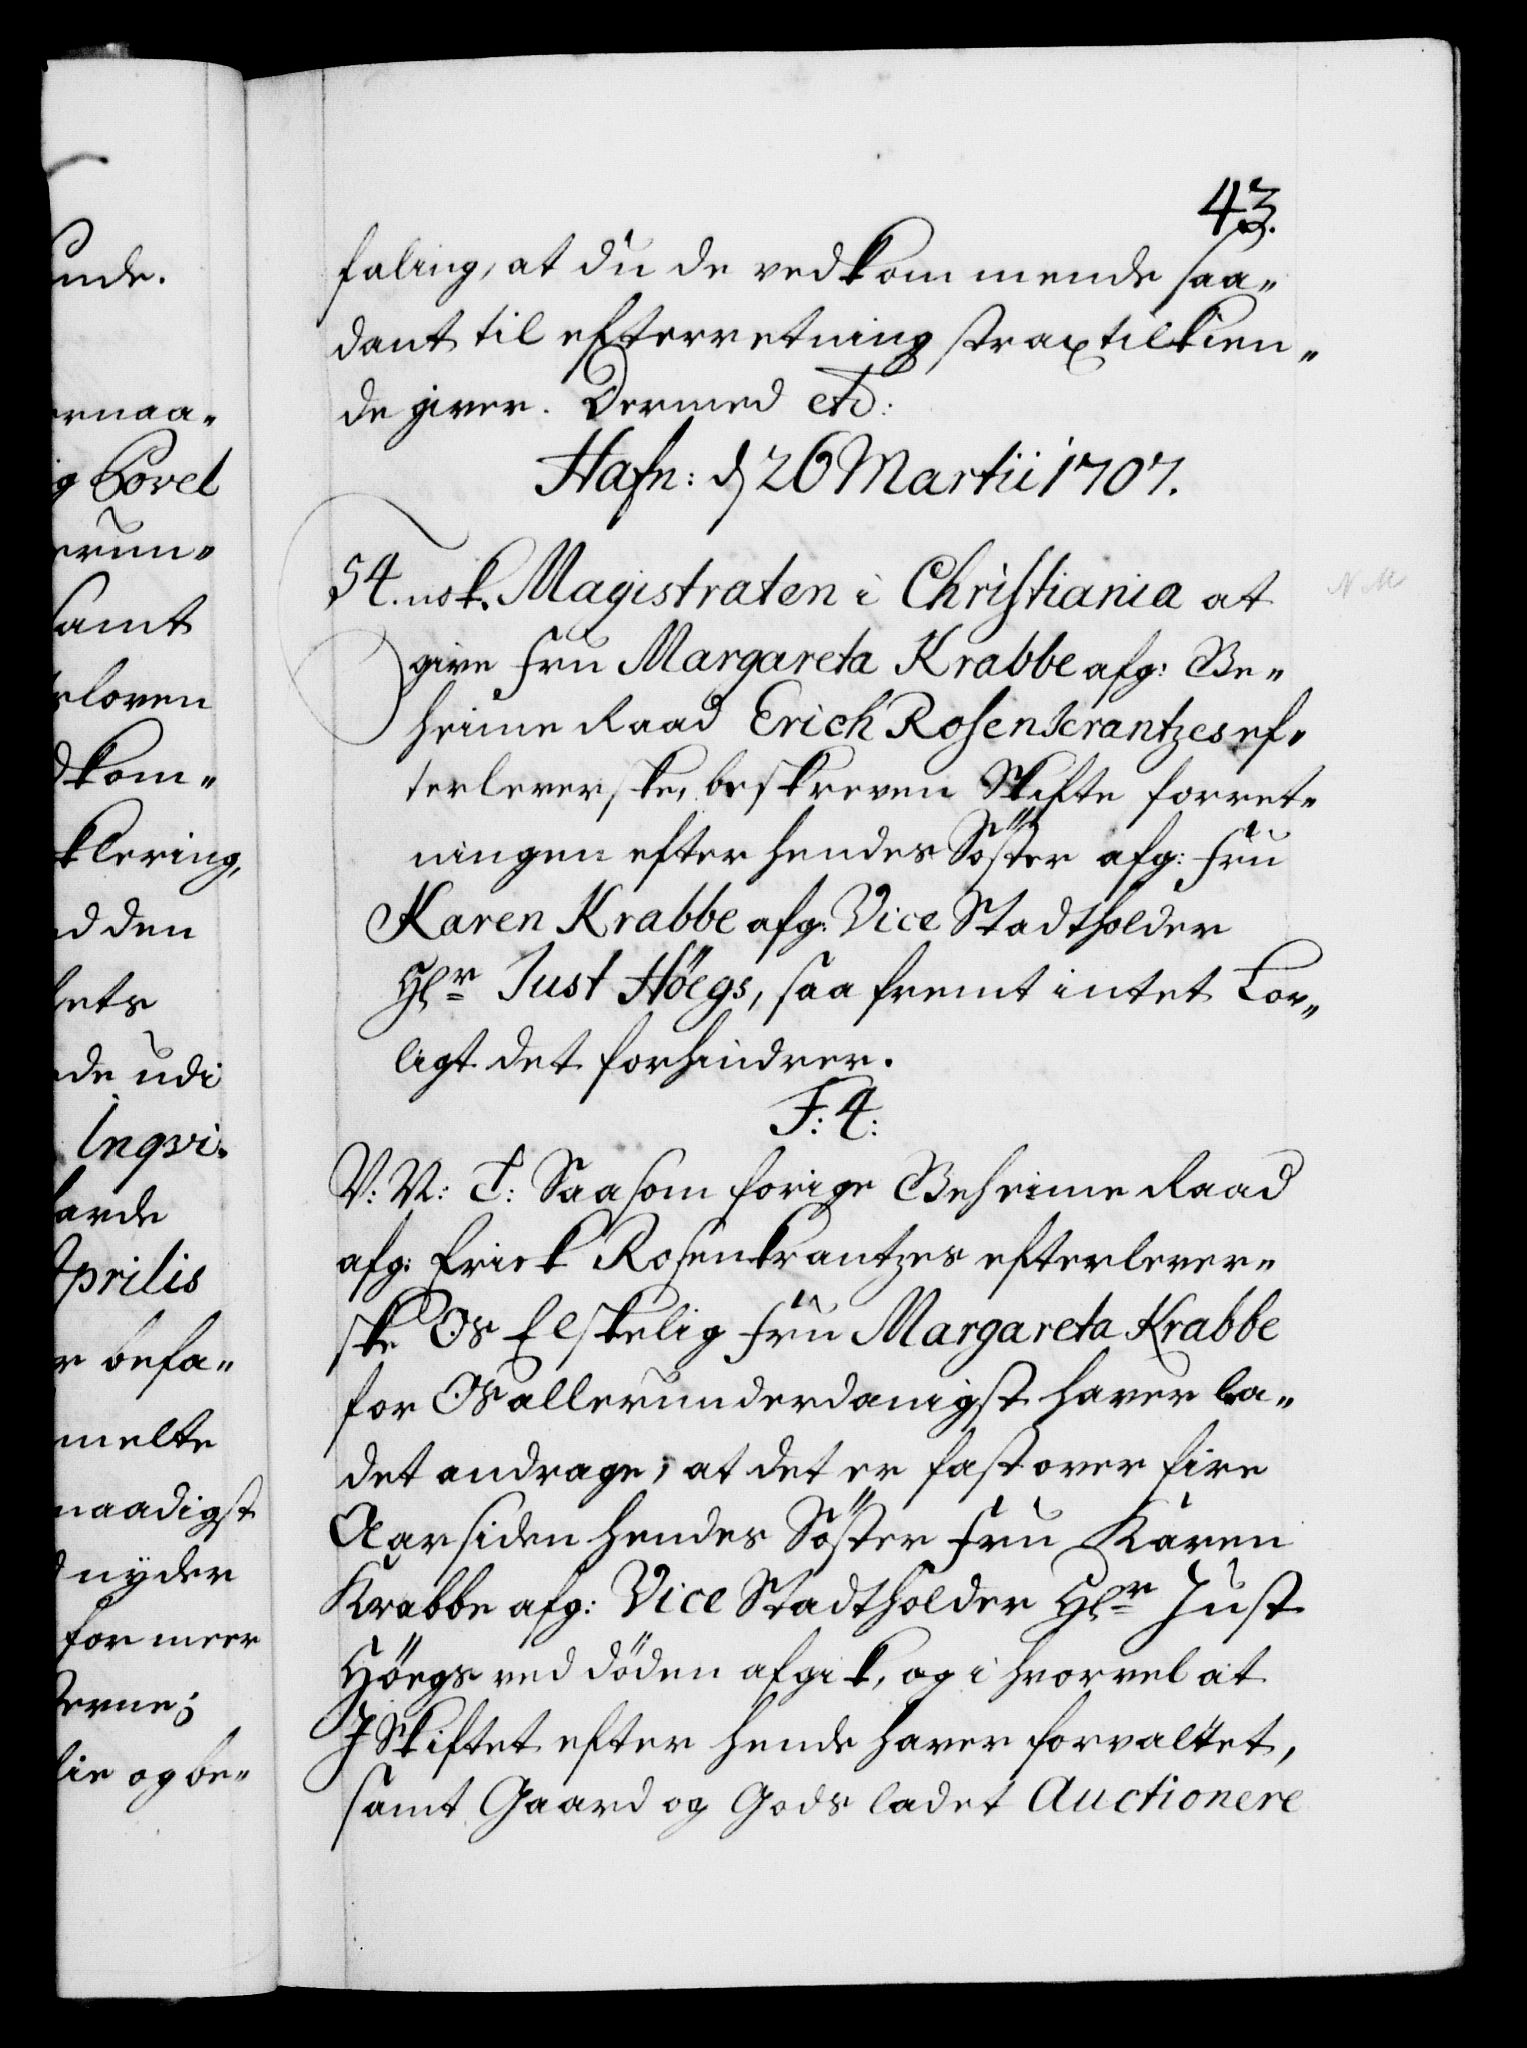 43.
faling, at du de vedkommende saa„
dant til efterretning straxtilkien„
de giver. Dermed etc:
Hafn: d 26 Martii 1707.
54. Magistraten i Christiania at
give Fru Margareta Krabbe afg: Ge„
heime Raad Erich Rosenkrantzes ef„
terleverske, beskreven Skifte forret„
ningen efter hendes Söster afg: Fru
Karen Krabbe afg: Vice Stadtholder
Hr Just Höegs, saa fremt intet Lov„
ligt det forhindrer.
F: 4:
V: V: T: Saasom forige Geheime Raad
afg: Erick Rosenkrantzes efterlever„
ske Os Elskelig Fru Margareta Krabbe
for Os allerunderdanigst haver la„
det andrage, at det er fast over fire
Aar siden hendes Söster Fru Karen
Krabbe afg: Vice Stadtholder Hr Just
Höegs ved döden afgik, og i hvorvel at
I Skiftet efter hende haver forvaltet,
samt Gaard og Gods ladet Auctionere
unde.
ernaa„
g Povel
erun„
samt
rloven
dkom„
klering,
d den
hets
de udi
Inqvi„
arde
Aprilis
r befa„
melte
naadigst
d nyder
for meer
terne;
lie og be„